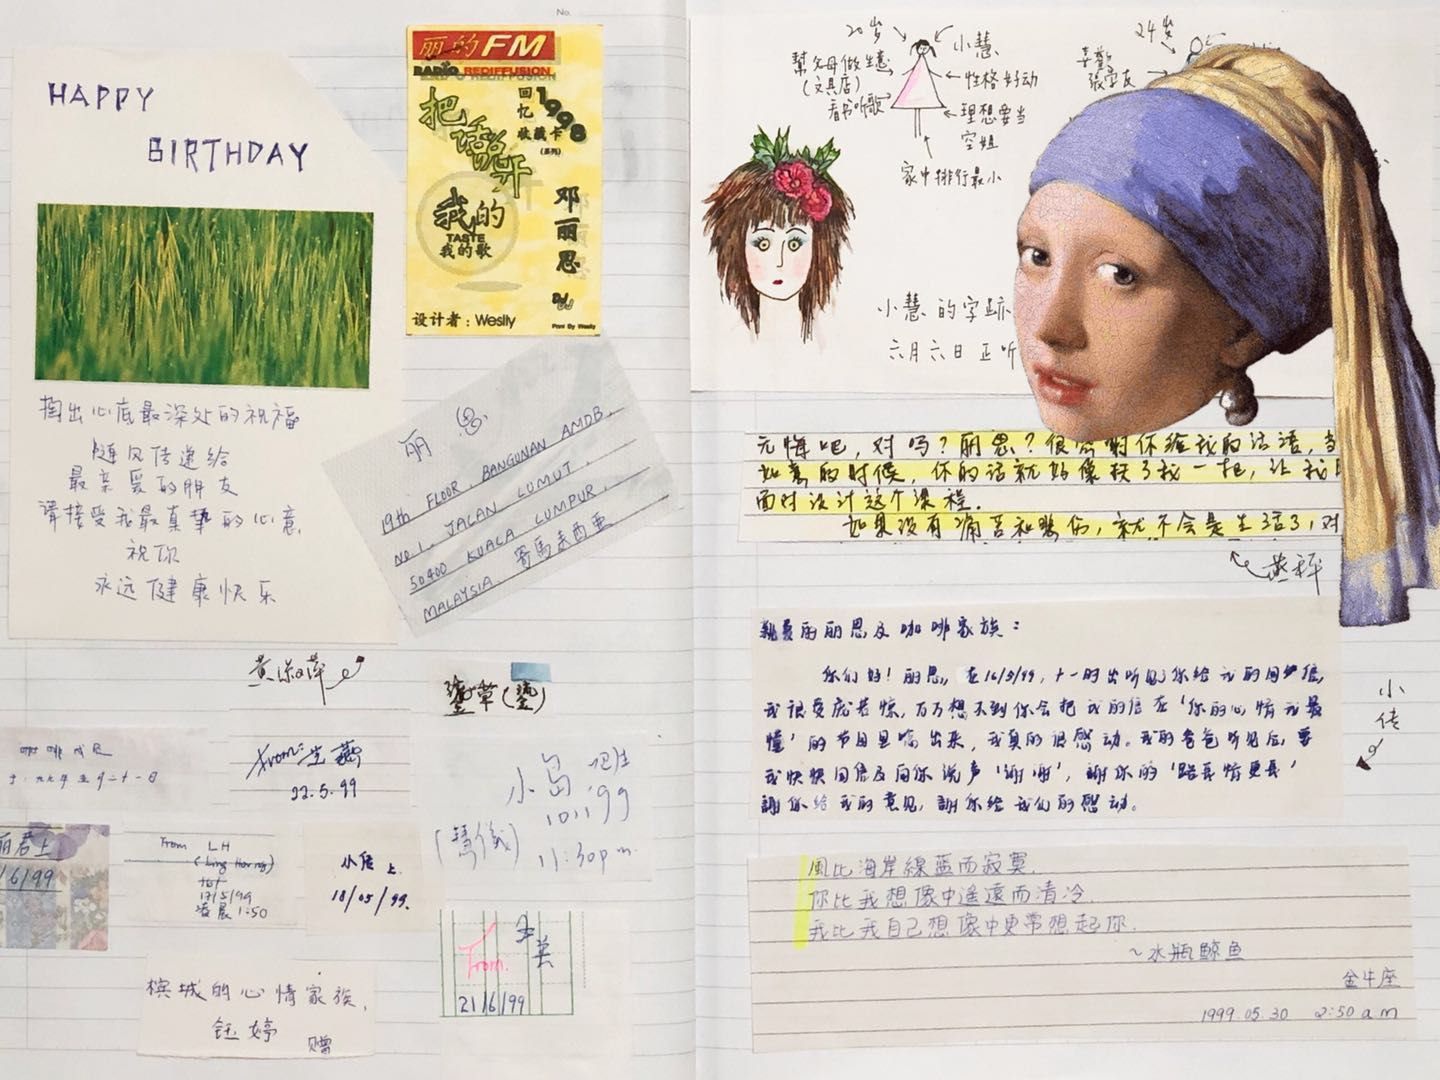 No.
HAPPY
BIRTHDAY
掏出心底最深处的祝福
随风传递给
最亲爱的朋友
请接受我最真挚的心意,
祝你
永远健康快乐
丽的FM
RADIO REDIFFUSION
把话说开
回忆1998
收藏卡
(系列)
我的
TASTE
我的歌
邓丽思
设计者：Weslly
Print By Weslly
丽思
19th FLOOR, BANGUNAN AMDB,
NO.1, JALAN LUMUT,
50400 KUALA LUMPUR,
MALAYSIA. 寄馬来西亜
From:
22.5.99
小岛
10.1.99
(慧儀)
11:30pm.
丽君上
/6/99
From LH
(Ling Horng)
17/5/99
凌晨1:50
小传上.
18/05/99.
From.
21/6/99
槟城的心情家族,
钰婷
赠
20岁
小慧
幫父母做生意
(文具店)
看书听歌
性格好动
理想要当
空姐
家中排行最小
24岁
喜歡
張学友
小慧的字跡
六月六日正听
无悔吧，对吗？丽思？很
的时候，你的话就好像扶了我一把，让我
面对设计这个课程.
如果没有痛苦和悲伤，就不会是生活了，对
親爱的丽思及咖啡家族：
你们好！丽思，在16/5/99，十一时出听见你给我的回信，
我很受庞若惊，万万想不到你会把我的信在‘你的心情我最
懂’的节目里唸出来，我真的很感动。我的爸爸听见后，要
我快快回信及向你说声‘謝謝’，謝你的‘路真情更真’
謝你给我的意见，謝你给我们的感动。
小传
風比海岸線藍而寂寞.
你比我想像中遥遠而清冷
我比我自己想像中更常想起你.
~水瓶鯨魚
金牛座
1999.05.30 2:50am